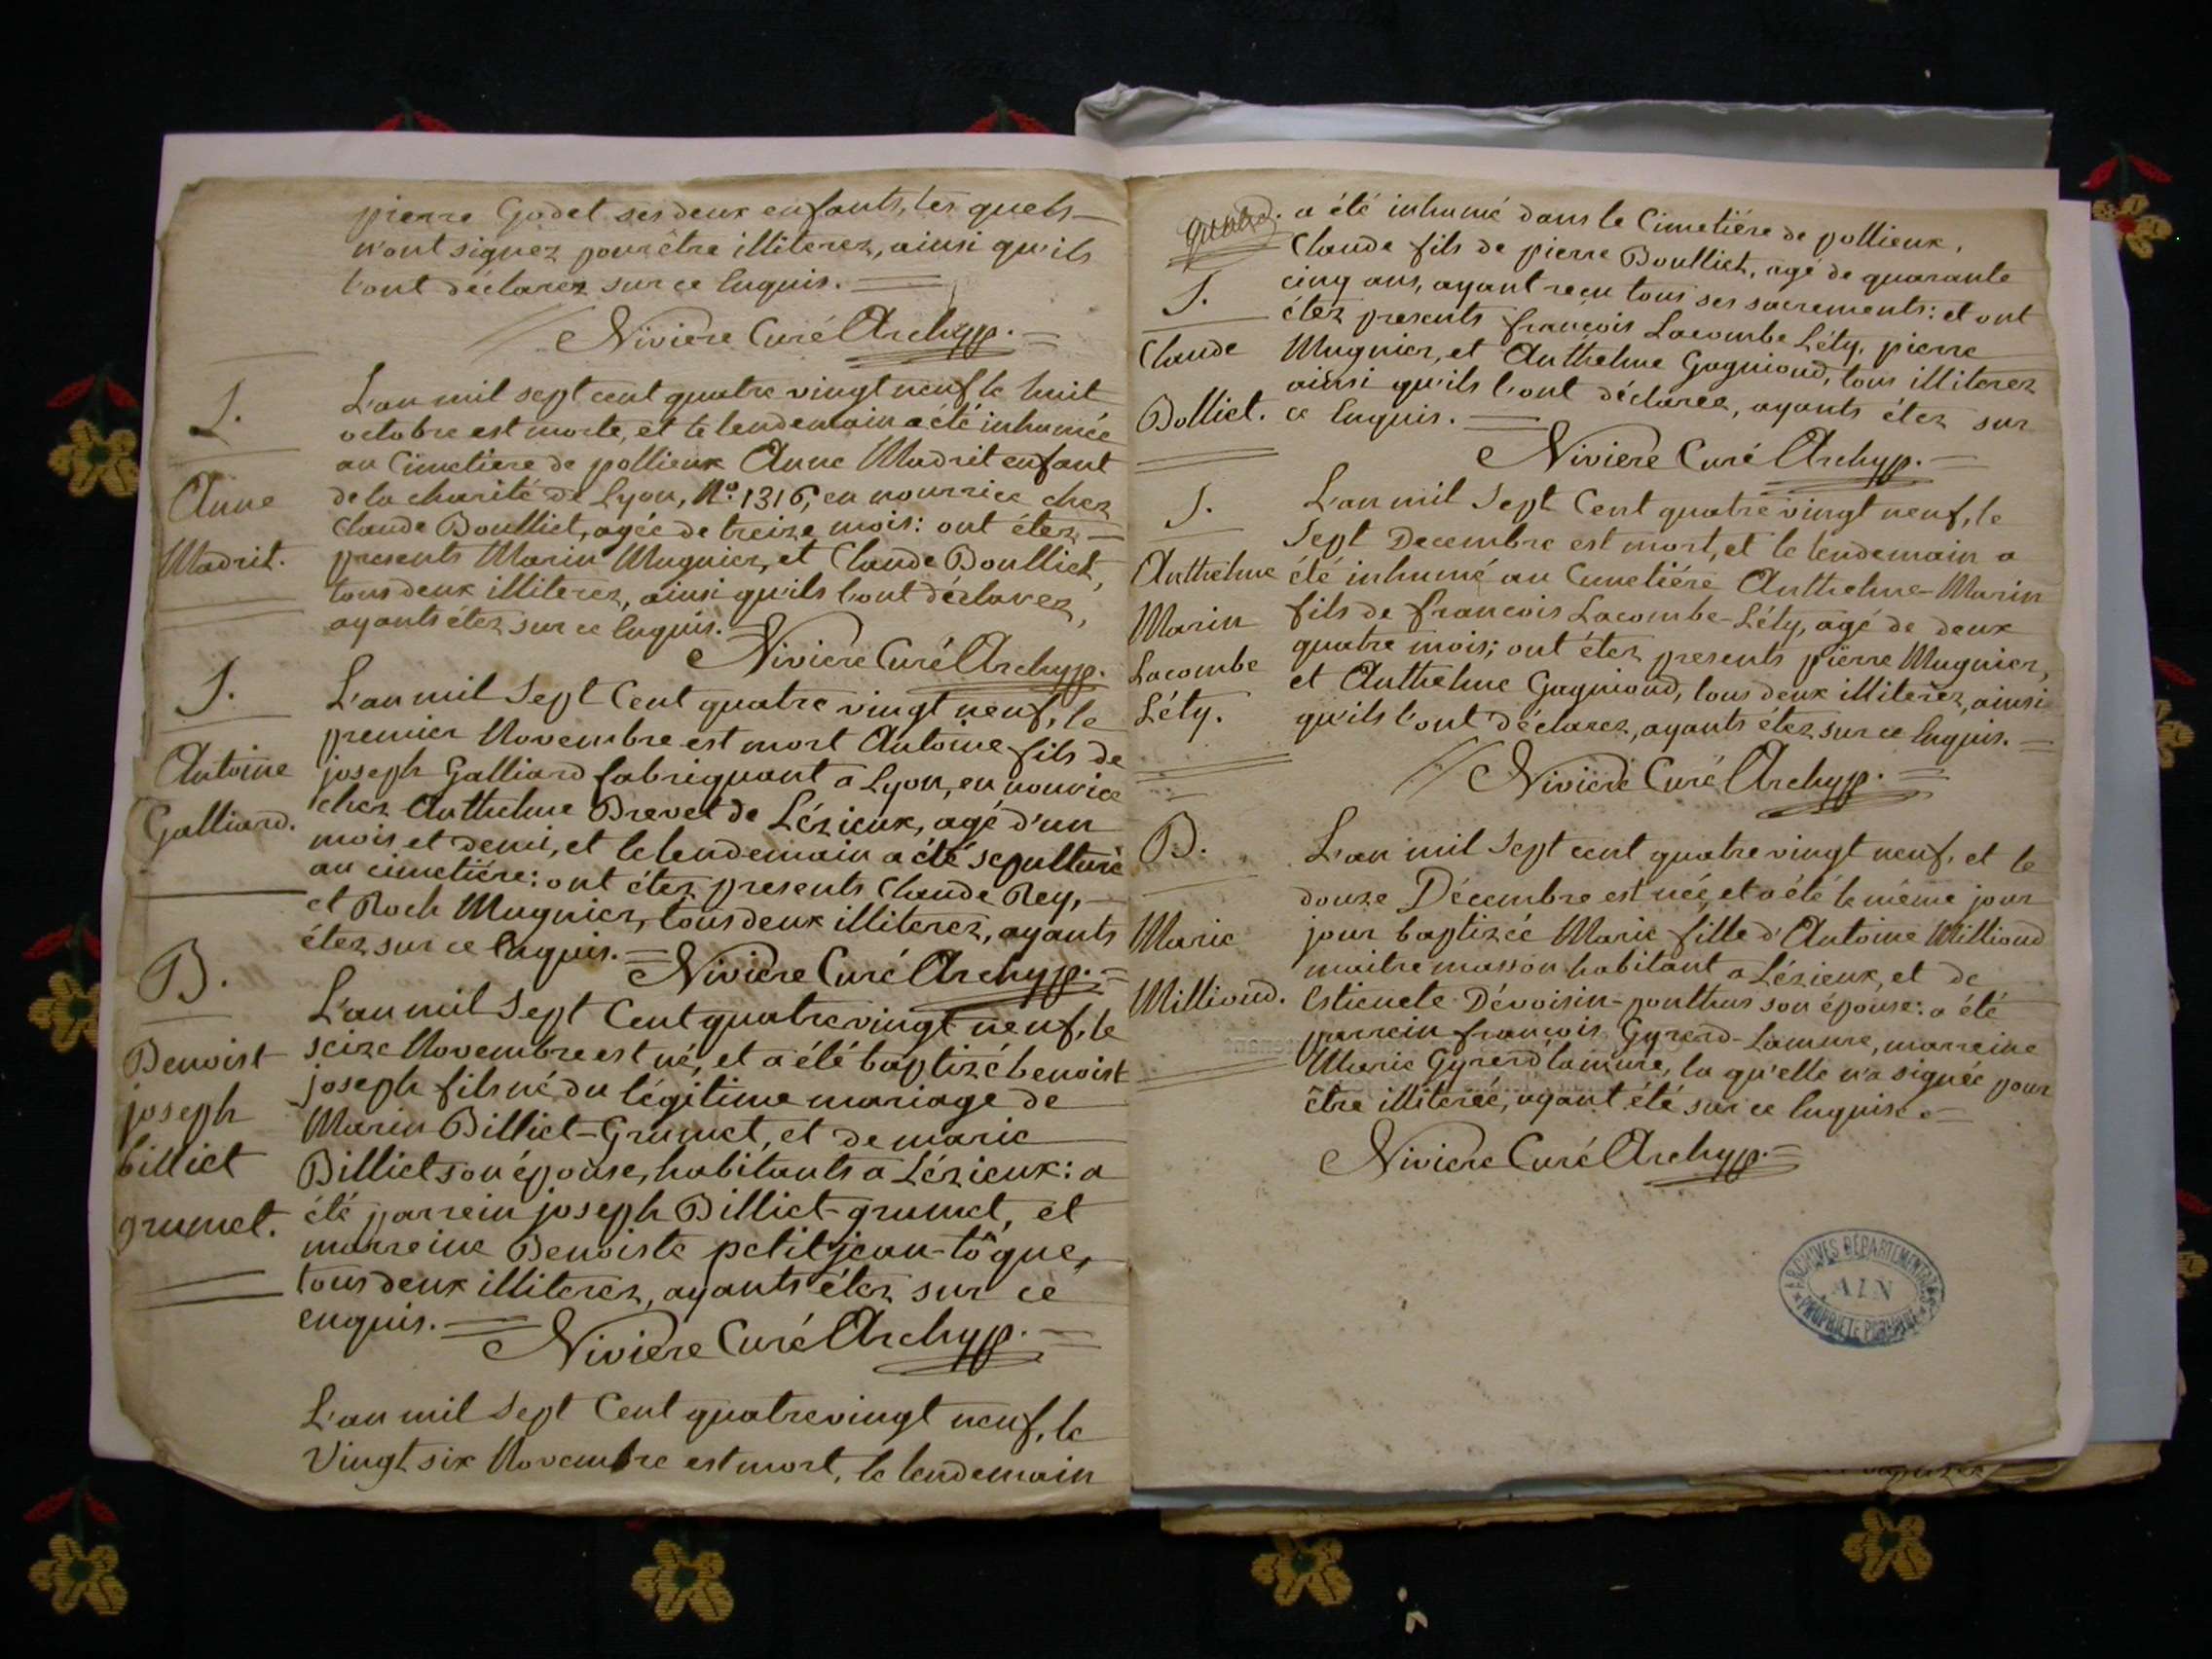 pierre Godet ses deux enfants, les quels
n'ont signez pour être illiterez, ainsi qu'ils
l'ont déclarez sur ce Enquis.
Nivière Curé Archyp.
S.
Anne
Madrit.
L'an mil sept cent quatre vingt neuf le huit
octobre est morte, et le lendemain a été inhumée
au Cimetiere de pollieux Anne Madrit enfant
de la charité de Lyon, N.° 1316, en nourrice chez
Claude Boulliet, agée de treize mois: ont étez
presents Marin Mugnier, et Claude Boulliet,
tous deux illiterez, ainsi qu'ils l'ont déclarez,
ayants étez sur ce Enquis.
Nivière Curé Archyp.
S.
Antoine
Galliard.
L'an mil Sept Cent quatre vingt neuf, le
premier Novembre est mort Antoine fils de
joseph Galliard fabriquant a Lyon, en nourice
chez Anthelme Brevet de Lézieux, agé d'un
mois et demi, et le lendemain a été sepulturé
au cimetiére: ont étez presents Claude Rey,
et Roch Mugnier, tous deux illiterez, ayants
étez sur ce Enquis.
Nivière Curé Archyp.
B.
Benoist
joseph
billiet
grumet.
L'an mil Sept Cent quatre vingt neuf, le
seize Novembre est né, et a été baptizé benoist
joseph fils né du légitime mariage de
Marin Billiet-Grumet, et de marie
Billiet son épouse, habitants a Lézieux: a
été parrein joseph Billiet-grumet, et
marreine Benoiste petitjean-tôgue,
tous deux illiterez, ayants étez sur ce
enquis.
Nivière Curé Archyp.
L'an mil Sept Cent quatre vingt neuf, le
Vingt six Novembre est mort, le lendemain
a été inhumé dans le Cimetiére de pollieux,
S.
Claude
Bolliet.
Claude fils de pierre Boulliet, agé de quarante
cinq ans, ayant recu tous ses sacrements: et ont
étez presents françois Lacombe Léty, pierre
Mugnier, et Anthelme Gagnioud, tous illiterez
ainsi qu'ils l'ont déclarez, ayants étez sur
ce Enquis.
Nivière Curé Archyp.
S.
Anthelme
Marin
Lacombe
Léty.
L'an mil Sept Cent quatre vingt neuf, le
Sept Decembre est mort, et le lendemain a
été inhumé au Cimetiére Anthelme-Marin
fils de francois Lacombe-Léty, agé de deux
quatre mois; ont étez presents pierre Mugnier,
et Anthelme Gagnioud, tous deux illiterez, ainsi
qu'ils l'ont déclarez, ayants étez sur ce Enquis.
Nivière Curé Archyp.
B.
Marie
Millioud.
L'an mil Sept cent quatre vingt neuf, et le
douze Décembre est née, et a été le même jour
jour baptizée Marie fille d'Antoine Millioud
maitre masson habitant a Lézieux, et de
Estienete Dévoisin-ponthus son épouse: a été
parrein françois Gyrerd-Lamure, marreine
Marie Gyrerd lamure, la qu'elle n'a signée pour
être illiterée, ayant été sur ce Enquise.
Nivière Curé Archyp.
ARCHIVES DÉPARTEMENTALES
AIN
PROPRIÉTÉ PUBLIQUE